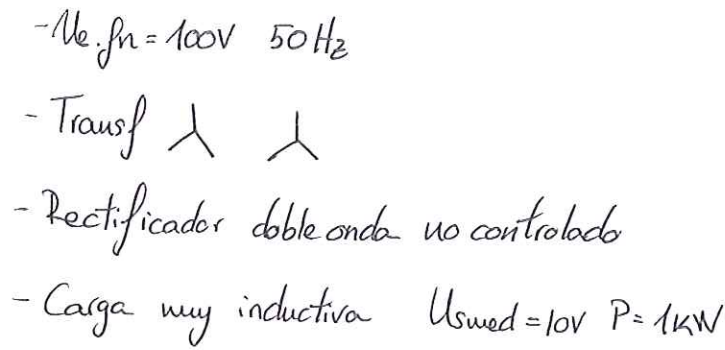 - Ue.fn = 100V 50 Hz
- Transf
- Rectificador doble onda no controlado
- Carga muy inductiva Usmed = 10V P = 1KW